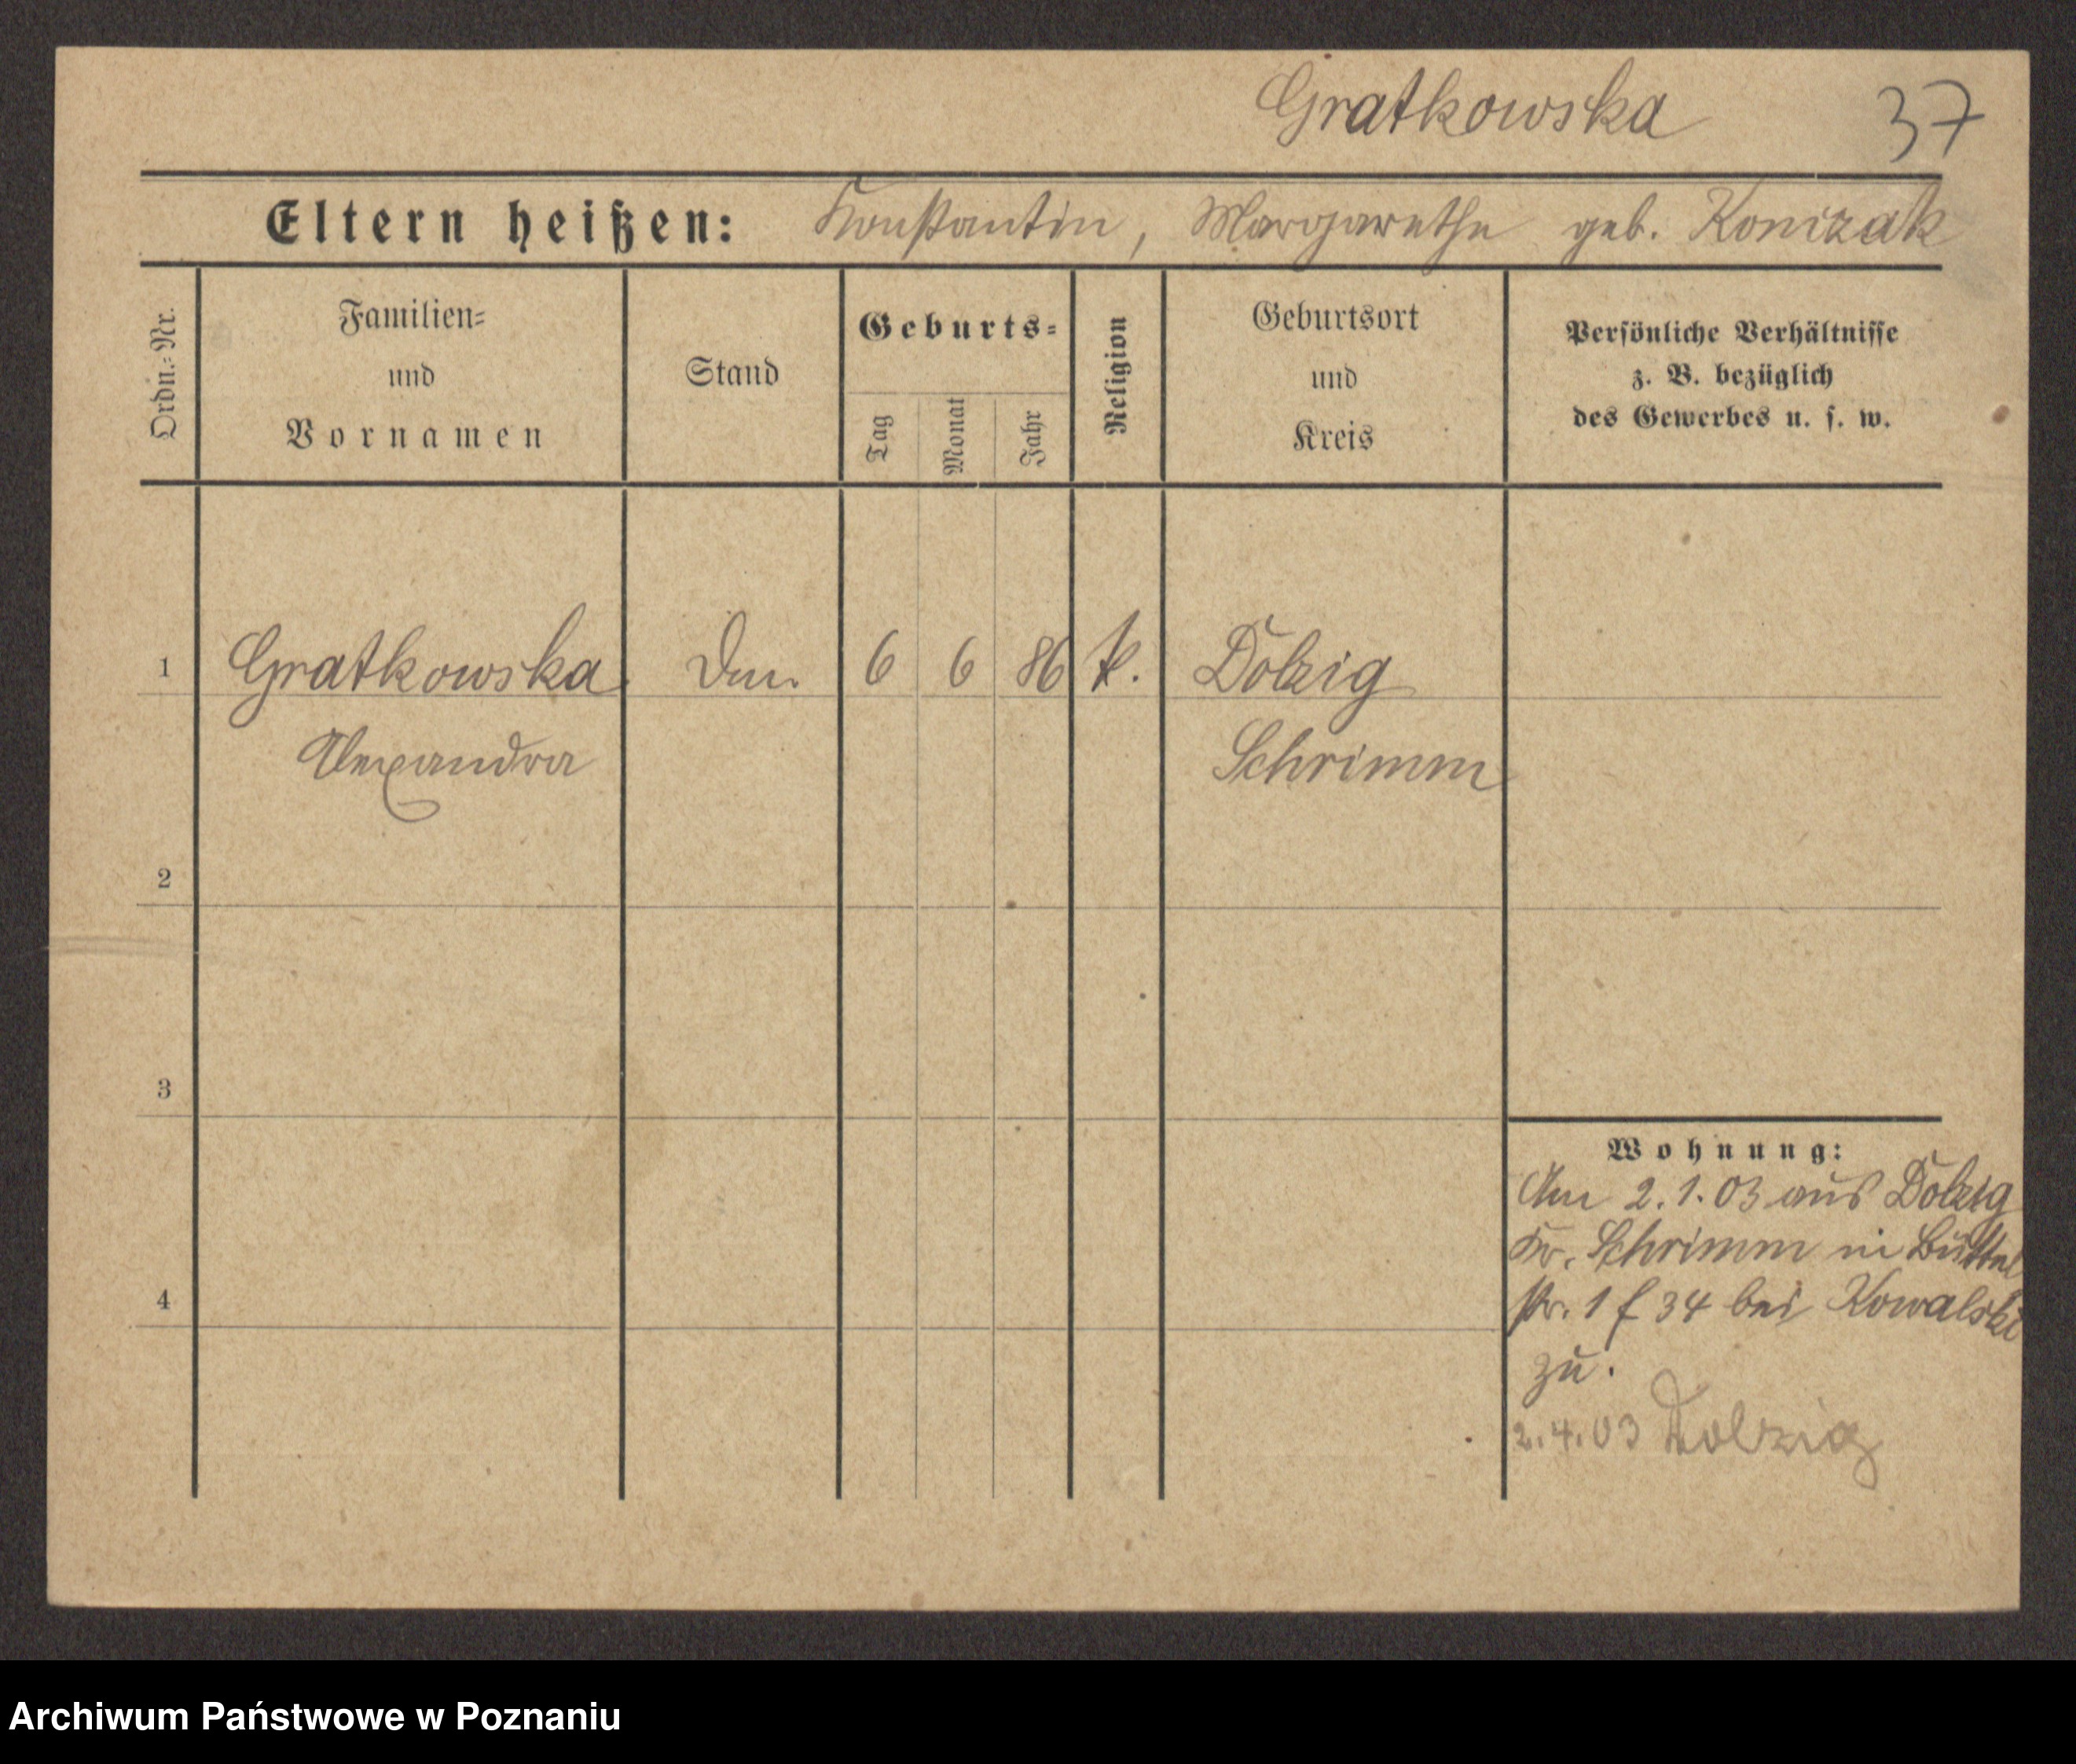 Gratkowska 37
Eltern heißen: Konstantin, Margarethe geb. Konizak
Ordn.-Nr.
Familien-
und
Vornamen
Stand
Geburts-
Tag
Monat
Jahr
Religion
Geburtsort
und
Kreis
Persönliche Verhältnisse
z. B. bezüglich
des Gewerbes u. s. w.
1 Gratkowska 6 6 86 k. Dolzig
Alexandra Schrimm
2
3
4
Wohnung:
Am 2.1.03 aus Dolzig
Kr. Schrimm in Büttel
str. 1 f 34 bei Kowalski
zu.
2.4.03 Dolzig
Archiwum Państwowe w Poznaniu